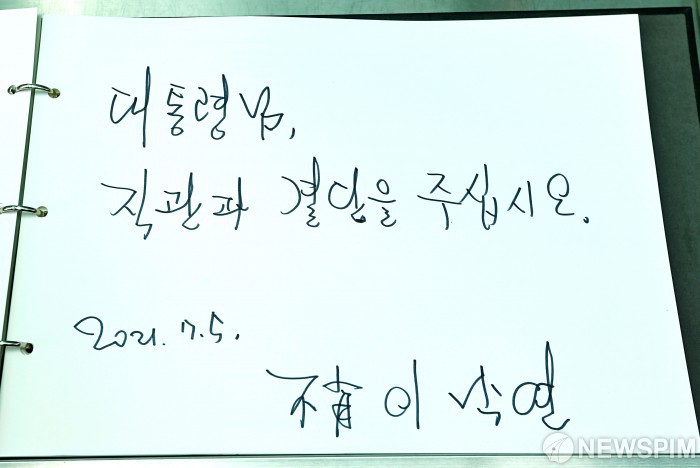 대통령님,
직관과 결단을 주십시오.
2021. 7. 5.
不肖 이낙연
NEWSPIM